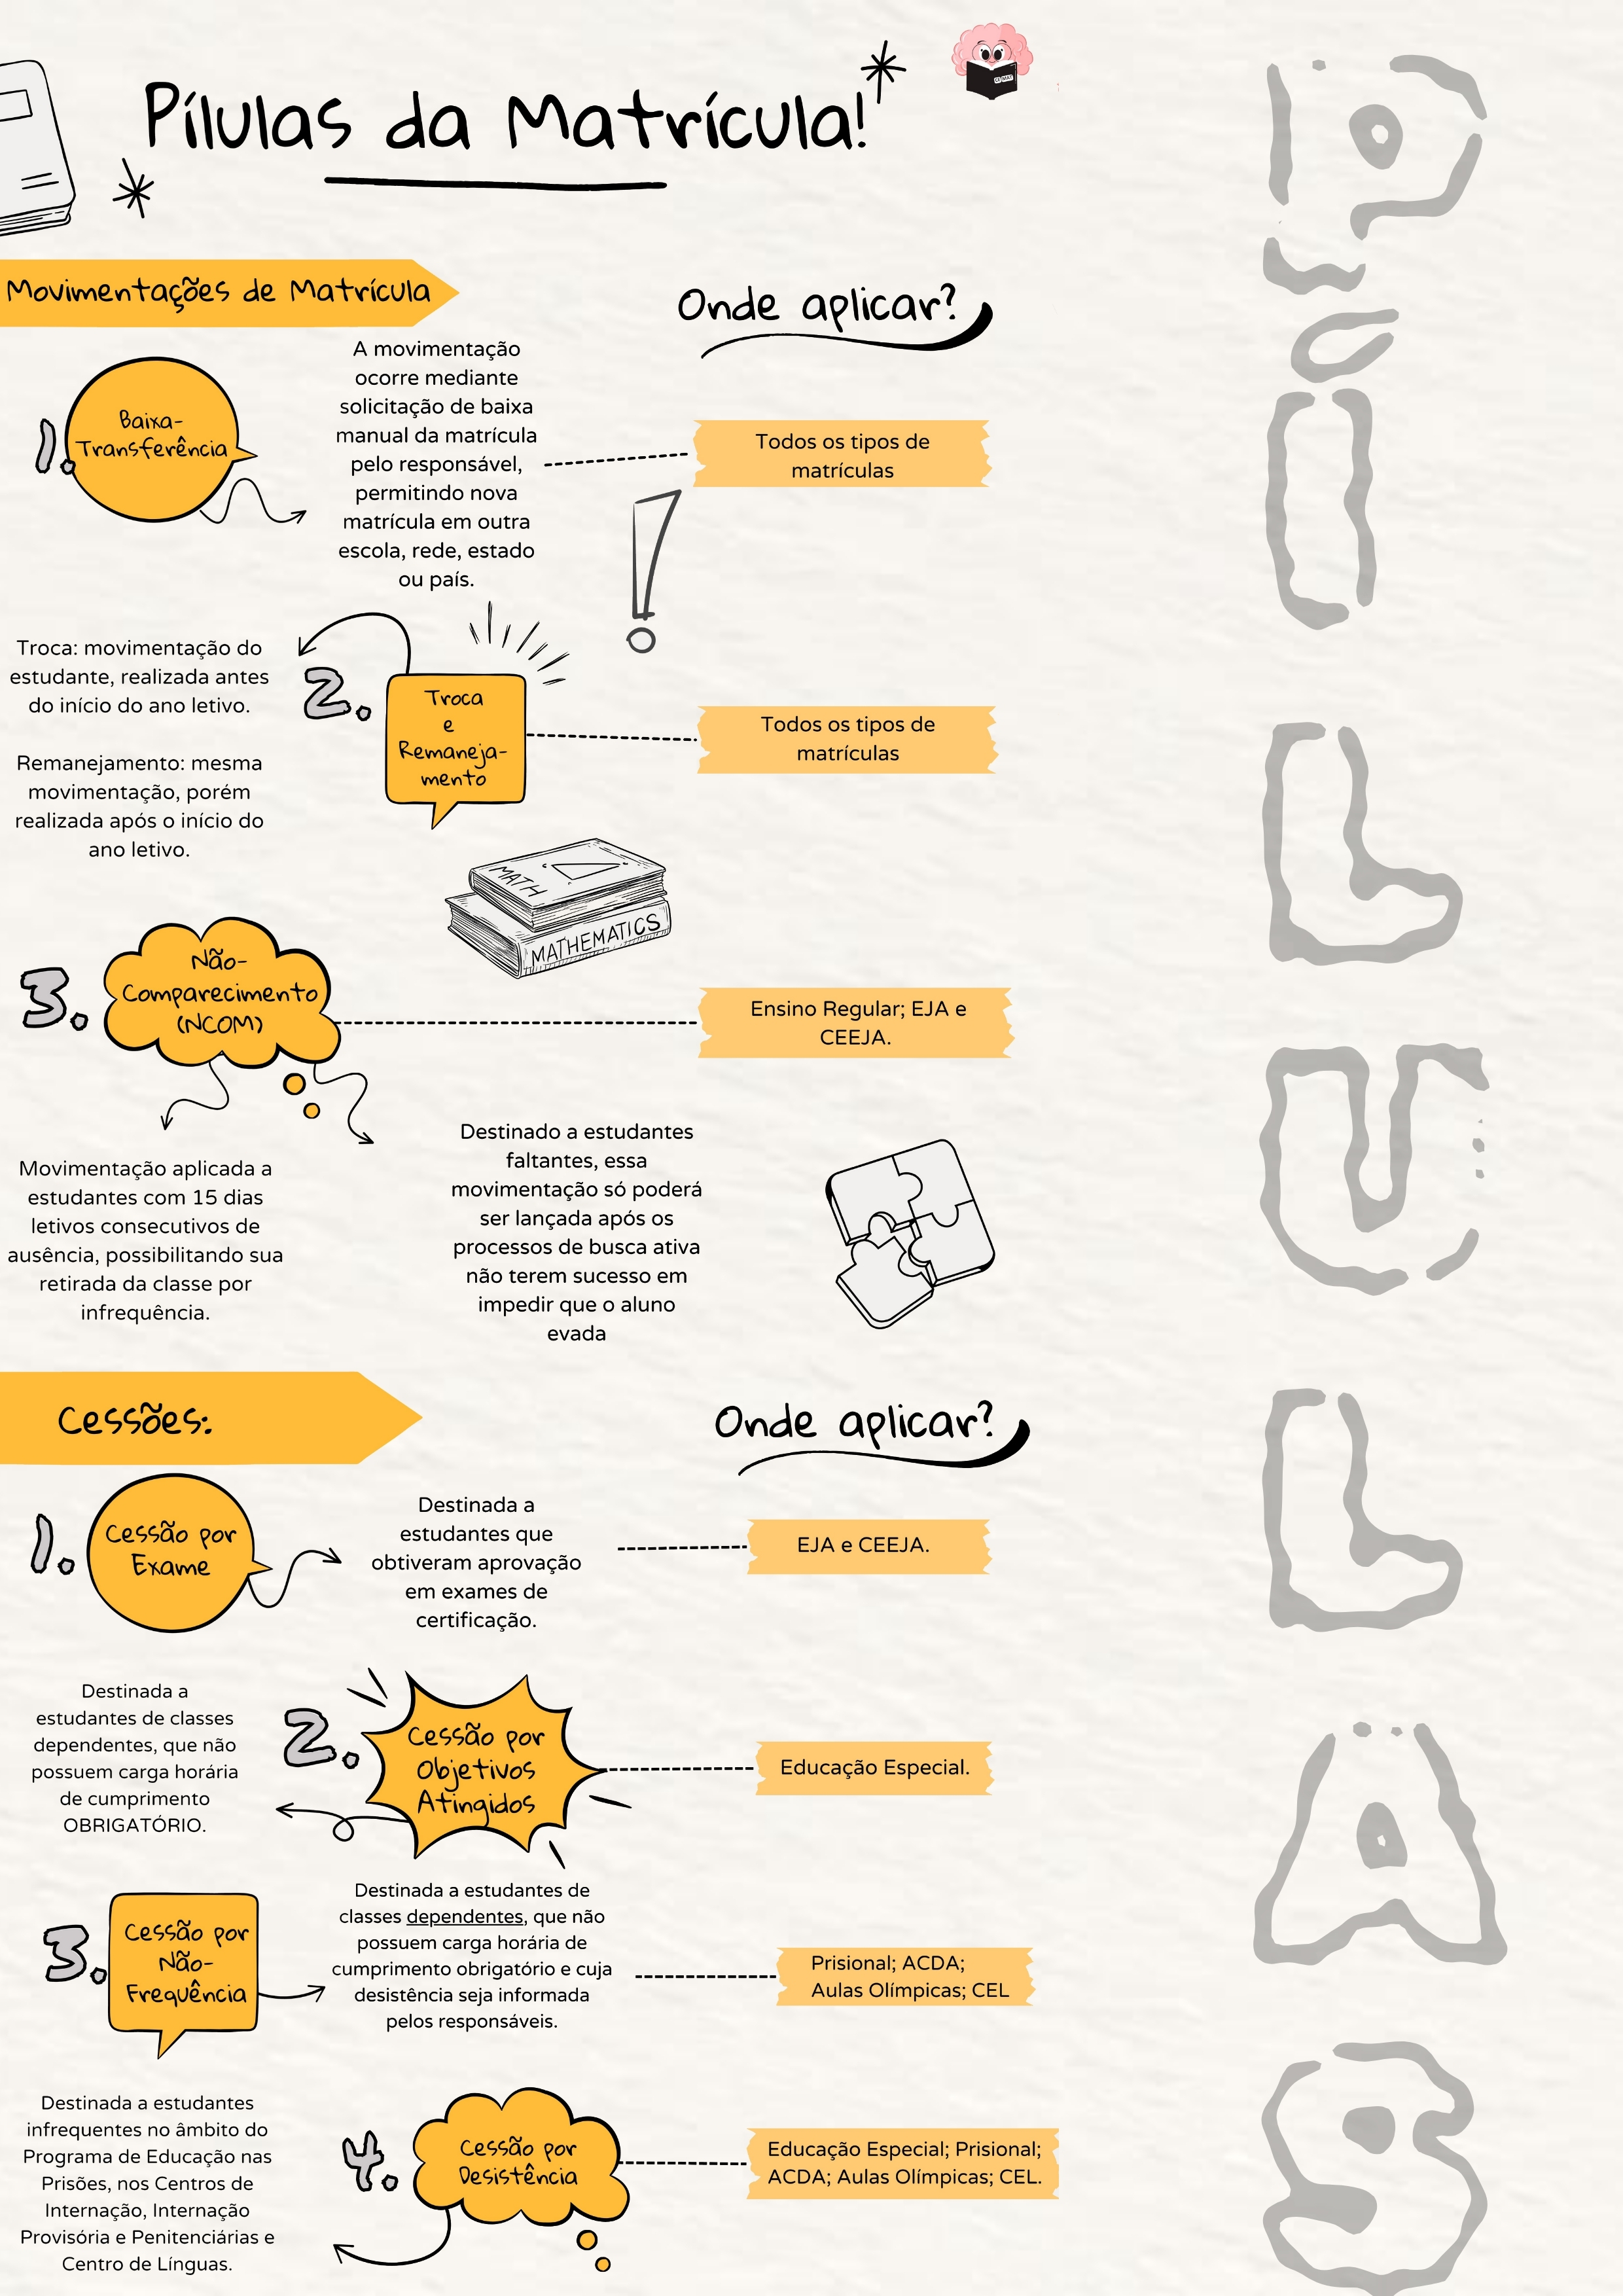 Pílulas da Matrícula!
Movimentações de Matrícula
Onde aplicar?
1.
Baixa-
Transferência
A movimentação
ocorre mediante
solicitação de baixa
manual da matrícula
pelo responsável,
permitindo nova
matrícula em outra
escola, rede, estado
ou país.
Todos os tipos de
matrículas
Troca: movimentação do
estudante, realizada antes
do início do ano letivo.
Remanejamento: mesma
movimentação, porém
realizada após o início do
ano letivo.
2.
Troca
e
Remaneja-
mento
Todos os tipos de
matrículas
MATH
MATHEMATICS
3.
Não-
Comparecimento
(NCOM)
Ensino Regular; EJA e
CEEJA.
Movimentação aplicada a
estudantes com 15 dias
letivos consecutivos de
ausência, possibilitando sua
retirada da classe por
infrequência.
Destinado a estudantes
faltantes, essa
movimentação só poderá
ser lançada após os
processos de busca ativa
não terem sucesso em
impedir que o aluno
evada
Cessões:
Onde aplicar?
1.
Cessão por
Exame
Destinada a
estudantes que
obtiveram aprovação
em exames de
certificação.
EJA e CEEJA.
Destinada a
estudantes de classes
dependentes, que não
possuem carga horária
de cumprimento
OBRIGATÓRIO.
2.
Cessão por
Objetivos
Atingidos
Educação Especial.
3.
Cessão por
Não-
Frequência
Destinada a estudantes de
classes dependentes, que não
possuem carga horária de
cumprimento obrigatório e cuja
desistência seja informada
pelos responsáveis.
Prisional; ACDA;
Aulas Olímpicas; CEL
Destinada a estudantes
infrequentes no âmbito do
Programa de Educação nas
Prisões, nos Centros de
Internação, Internação
Provisória e Penitenciárias e
Centro de Línguas.
4.
Cessão por
Desistência
Educação Especial; Prisional;
ACDA; Aulas Olímpicas; CEL.
PÍLULAS